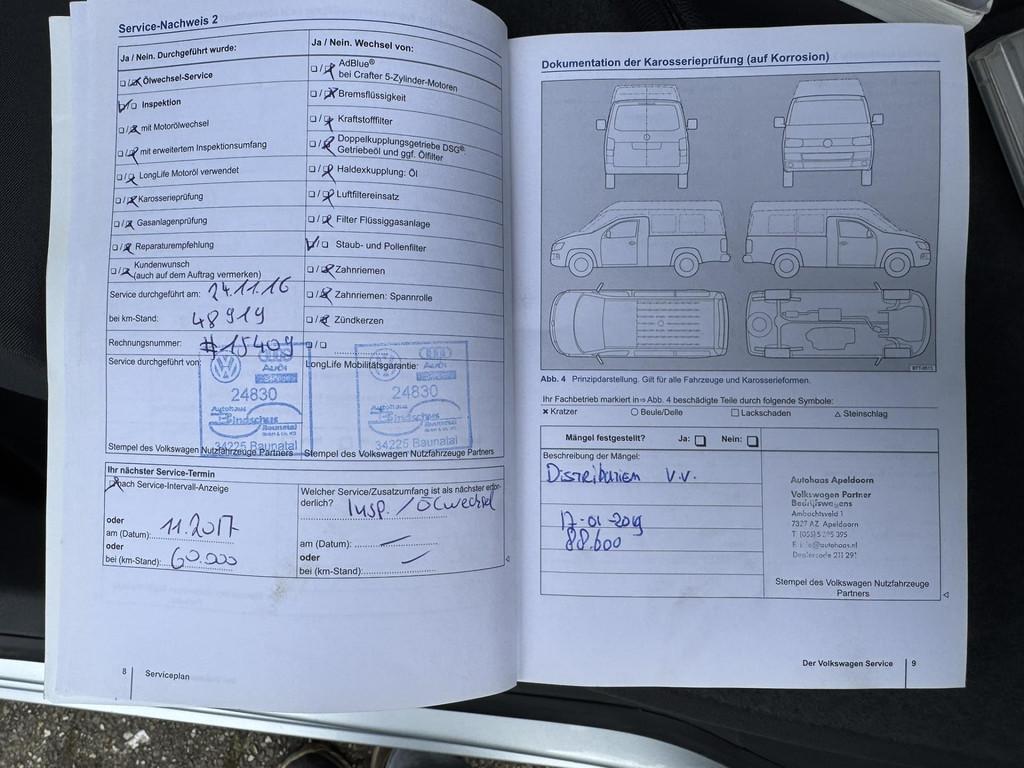 Service-Nachweis 2
Ja / Nein. Durchgeführt wurde:
Ölwechsel-Service
Inspektion
mit Motorölwechsel
mit erweitertem Inspektionsumfang
LongLife Motoröl verwendet
Karosserieprüfung
Gasanlagenprüfung
Reparaturempfehlung
Kundenwunsch
(auch auf dem Auftrag vermerken)
Service durchgeführt am: 24.11.16
bei km-Stand: 48919
Rechnungsnummer: #15409
Service durchgeführt von:
Audi
24830
Autohaus
Baunatal
34225 Baunatal
Stempel des Volkswagen Nutzfahrzeuge Partners
Ja / Nein. Wechsel von:
AdBlue®
bei Crafter 5-Zylinder-Motoren
Bremsflüssigkeit
Kraftstofffilter
Doppelkupplungsgetriebe DSG®:
Getriebeöl und ggf. Ölfilter
Haldexkupplung: Öl
Luftfiltereinsatz
Filter Flüssiggasanlage
Staub- und Pollenfilter
Zahnriemen
Zahnriemen: Spannrolle
Zündkerzen
LongLife Mobilitätsgarantie:
Audi
24830
Autohaus
Baunatal
34225 Baunatal
Stempel des Volkswagen Nutzfahrzeuge Partners
Ihr nächster Service-Termin
nach Service-Intervall-Anzeige
oder
am (Datum): 11.2017
oder
bei (km-Stand): 60.000
Welcher Service/Zusatzumfang ist als nächster erfor-
derlich? Insp. / Ölwechsel
am (Datum):
oder
bei (km-Stand):
8 Serviceplan
Dokumentation der Karosserieprüfung (auf Korrosion)
Abb. 4 Prinzipdarstellung. Gilt für alle Fahrzeuge und Karosserieformen.
Ihr Fachbetrieb markiert in ⇒ Abb. 4 beschädigte Teile durch folgende Symbole:
× Kratzer ○ Beule/Delle □ Lackschaden △ Steinschlag
Mängel festgestellt? Ja: Nein:
Beschreibung der Mängel:
Distributiem V.V.
17-01-2019
88.600
Autohaus Apeldoorn
Volkswagen Partner
Bedrijfswagens
Ambachtsveld 1
7327 AZ Apeldoorn
Stempel des Volkswagen Nutzfahrzeuge
Partners
Der Volkswagen Service 9